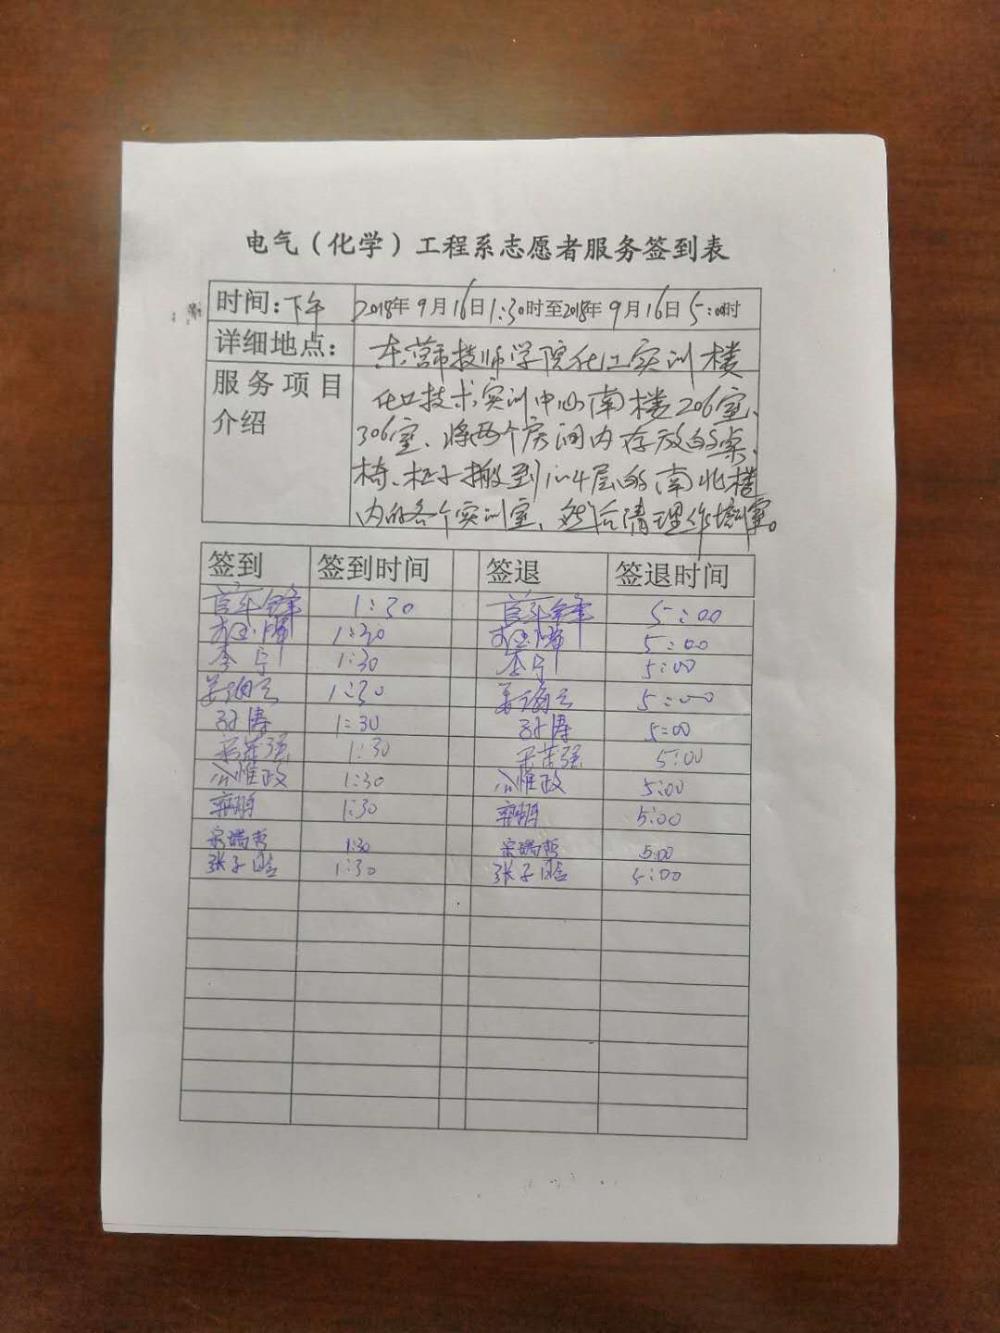 电气（化学）工程系志愿者服务签到表
时间：下午 2018年9月16日1:30时至2018年9月16日5:00时
详细地点： 东营市技师学院化工实训楼
服务项目介绍
化工技术实训中心南楼206室、
306室、将两个房间内存放的桌、
椅、柜子搬到1~4层的南北楼
内的各个实训室、然后清理作培训室。
签到 签到时间 签退 签退时间
1:30 5:00
1:30 5:00
李宁 1:30 李宁 5:00
1:30 5:00
孙涛 1:30 孙涛 5:00
1:30 5:00
1:30 5:00
1:30 5:00
宋瑞哲 1:30 宋瑞哲 5:00
张子晗 1:30 张子晗 5:00